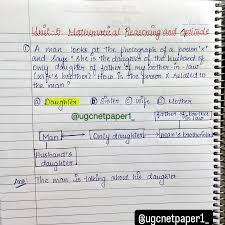 Unit-5 Mathematical Reasoning and Aptitude
① A man looks at the photograph of a person "x"
and says "she is the daughter of the husband of
only daughter of father of my brother-in-law"
(wife's brother) How is the person X related to
the man?
ⓐ Daughter ⓑ Sister ⓒ Wife ⓓ Mother
@ugcnetpaper1_
father of brother
in law
Man Only daughter man's brother in law
Husband's
daughter
Ans: The man is talking about his daughter
@ugcnetpaper1_